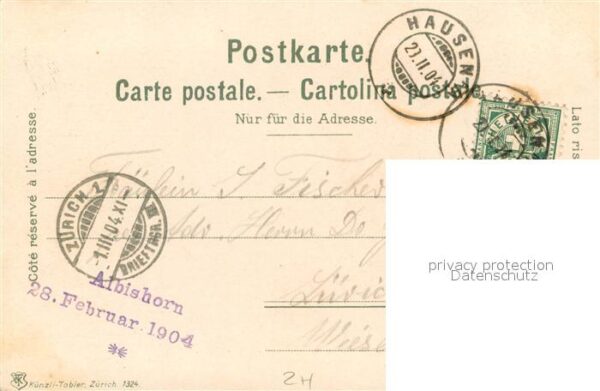 Postkarte.
Carte postale. — Cartolina postale.
Nur für die Adresse.
HAUSEN
HAUSEN
Côté réservé à l'adresse.
Lato ris
Fräulein J. Fischer
Herrn
ZÜRICH 1
1.III.04.XI
BRIEFTRGR.
Albishorn
28. Februar 1904
**
privacy protection
Datenschutz
Künzli-Tobler, Zürich. 1324.
24